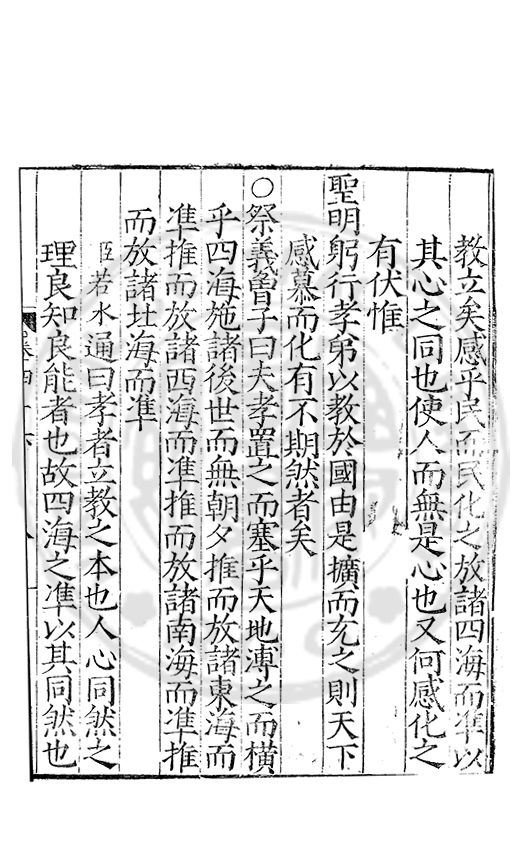 教立矣感乎民而民化之放諸四海而準以
其心之同也使人而無是心也又何感化之
有伏惟
聖明躬行孝弟以教於國由是擴而充之則天下
感慕而化有不期然者矣
○祭義曾子曰夫孝置之而塞乎天地溥之而橫
乎四海施諸後世而無朝夕推而放諸東海而
準推而放諸西海而準推而放諸南海而準推
而放諸北海而準
臣若水通曰孝者立教之本也人心同然之
理良知良能者也故四海之準以其同然也